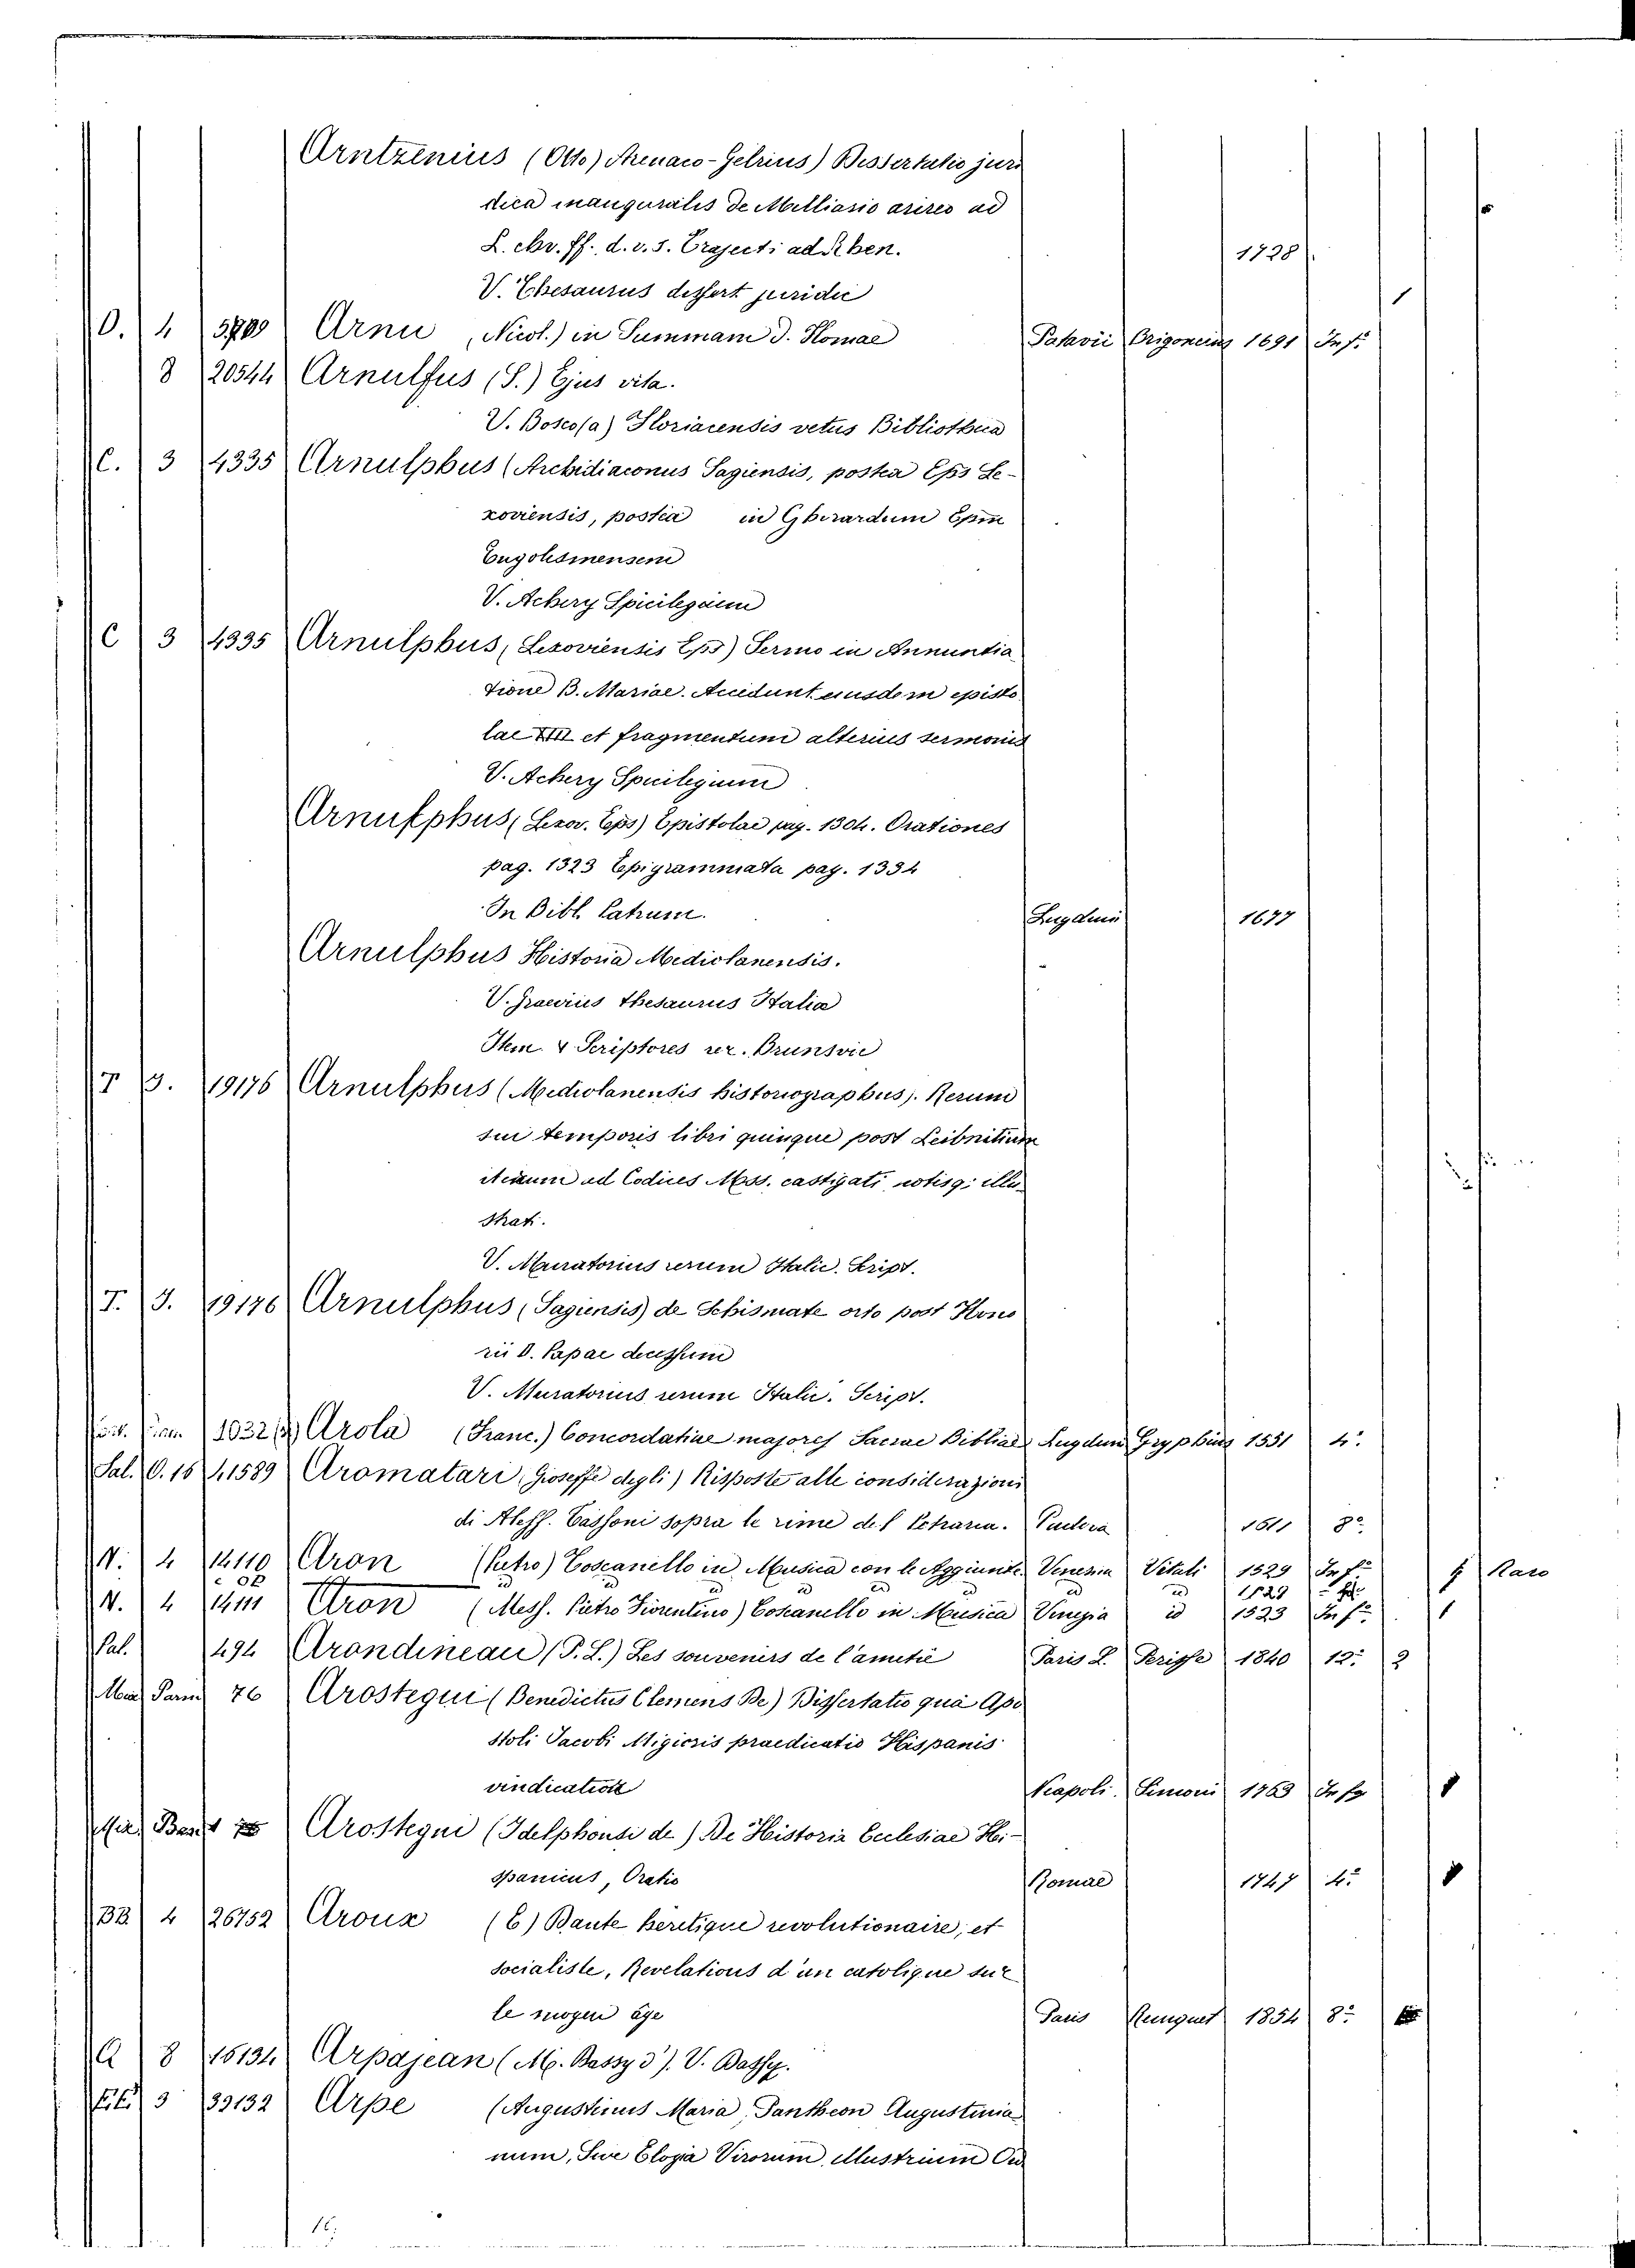 Arntzenius (Otto) Arenaco-Gelrius) Dissertatio juri
dica inauguralis de Milliario aureo ad
L. chr. ff. d. v. s. Trajecti ad Rhen. 1728
V. Thesaurus dissert juridic 1
O. 4 Arnu (Nicol.) in Summam d. Thomae Patavii Frigoneins 1691 In f:
8 20544 Arnulfus (S.) Ejus vita.
V. Bosco (a) Floriacensis vetus Bibliotheca
C. 3 4335 Arnulphus (Archidiaconus Sagiensis, postea Eps Le-
xoviensis, postea in Gherardum Epm
Engolismensem
V. Achery Spicilegium
C 3 4335 Arnulphus, Lexoviensis Eps) Sermo in Annuntia
tione B. Mariae. Accedunt eiusdem episto
lae et fragmentum alterius sermonis
V. Achery Spicilegium
Arnulphus (Lexov. Eps) Epistolae pag. 1304. Orationes
pag. 1323 Epigrammata pag. 1334
In Bibl. Patrum. Lugduni 1677
Arnulphus Historia Mediolanensis.
V. Graevius thesaurus Italiae
Item V Scriptores rer. Brunsvic
T J. 19176 Arnulphus (Mediolanensis historiographus). Rerum
sui temporis libri quinque post Leibnitium
iterum ad Codices Mss. castigati notisq: illu
strati.
V. Muratorius rerum Italic. Script.
T. J. 19176 Arnulphus (Sagiensis) de Schismate orto post Hono
rii II. Papae decessum
V. Muratorius rerum Italic. Script.
1032 Arola (Franc.) Concordatiae majores Sacrae Bibliae Lugdun Gryphius 1551 4:
Sal. O. 15 1.1589 Aromatari (Gioseffe degli) Risposte alle considerazioni
di Aless. Tassoni sopra le rime del Petrarca. Padova 1611 8º
N. 4 14110 Aron (Pietro) Toscanello in Musica con le Aggiunte Venezia Vitali 1529 In f: 1 Raro
N. 4 14111 Aron (Mess. Pietro Fiorentino) Toscanello in Musica Venezia id 1523 In f: 1
Sal. 494 Arondineau (P. L.) Les souvenirs de l'amitié Paris L. Perisse 1840 12: 2
Parm 76 Arostegui (Benedictus Clemens De) Dissertatio qua Apo
stoli Jacobi Migioris praedicatio Hispanis
vindicatioe Neapoli. Simoni 1763 In f
Arostegui (Idelphonsi de) De Historia Ecclesiae Hi-
spanicus, Oratio Romae 1747 4:
BB 4 26752 Aroux (E) Dante heretique revolutionaire, et
socialiste, Revelations d'un catolique sur
le moyen age Paris Renquet 1854 8:
A 8 16134 Arpajean (M. Bassy d'). V. Bassy.
3 39132 Arpe (Augustinus Maria, Pantheon Augustinia
num, Sive Elogia Virorum illustrium Or